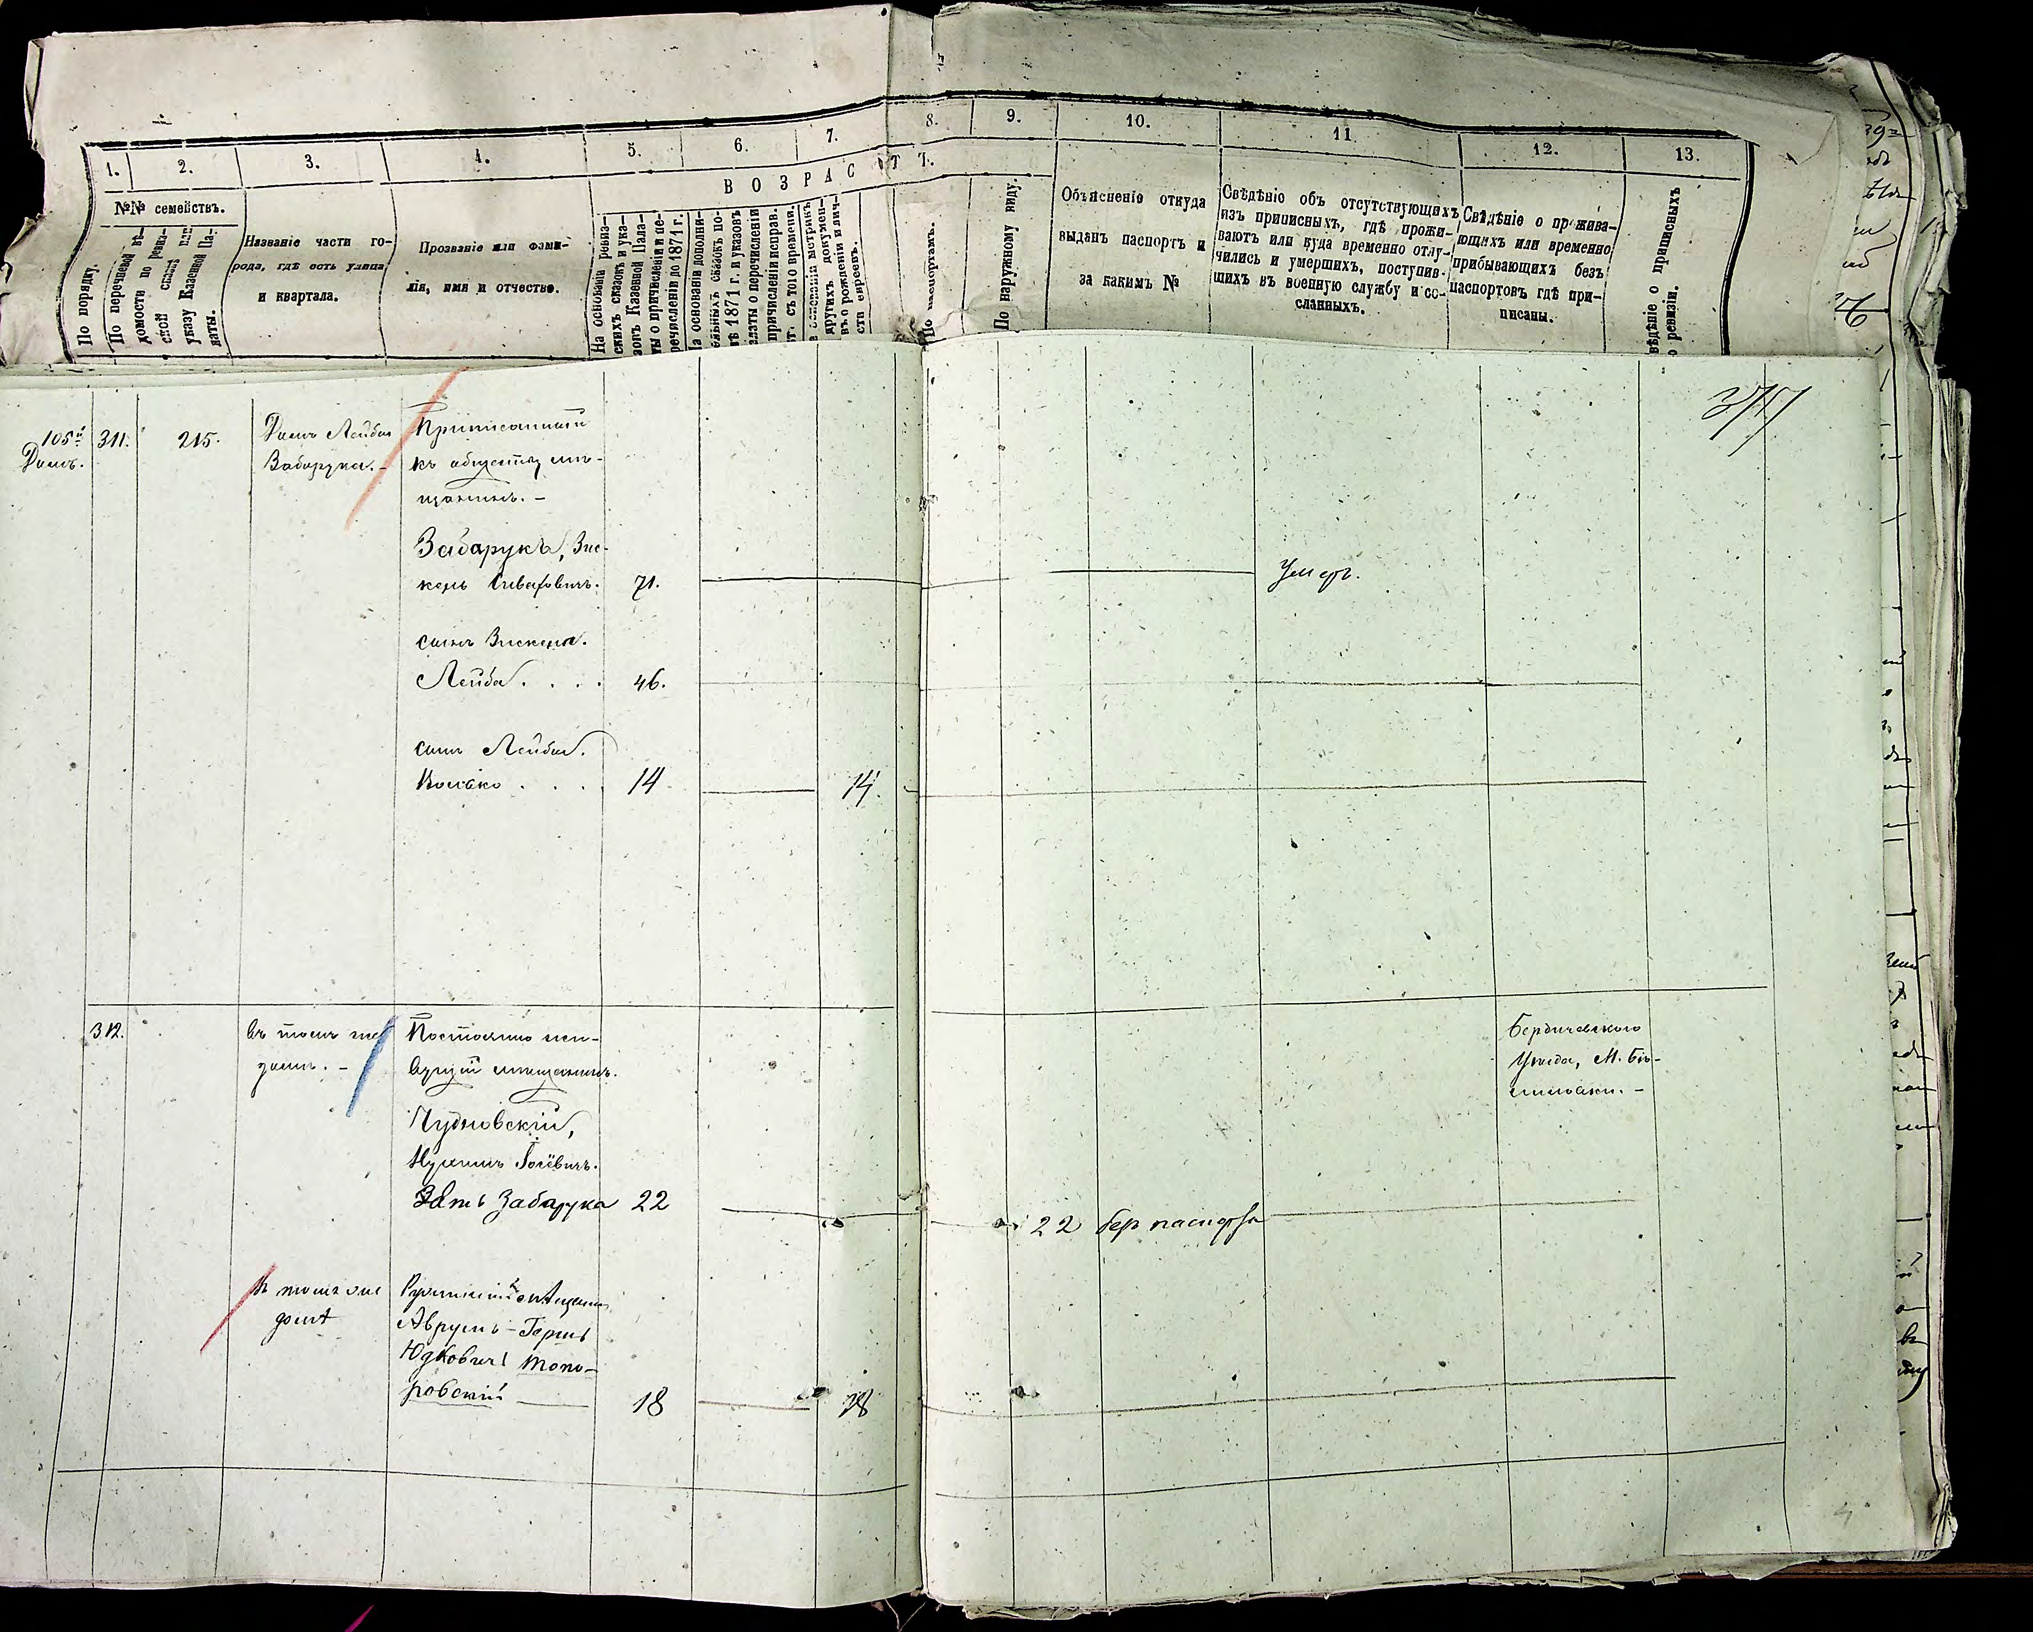 1. 2. 3. 4. 5. 6. 7. 8. 9. 10. 11 12. 13.
№№ семействъ.
ВОЗРАСТЪ.
По порядку.
По перечневой вѣ-
домости по ревиз-
ской сказкѣ или
указу Казенной Па-
латы.
Названіе части го-
рода, гдѣ есть улица
и квартала.
Прозваніе или фами-
лія, имя и отчество.
На основаніи ревиз-
скихъ сказокъ и ука-
зовъ Казенной Пала-
ты о причисленіи и пе-
речисленіи до 1871 г.
На основаніи дополни-
ельныхъ сказокъ по-
1871 г. и указовъ
латы о перечисленіи
причисленіи исправ.
съ того времени.
основаніи метрикъ
другихъ докумен-
въ о рожденіи и лич-
сти евреевъ.
По паспортамъ.
По наружному виду.
Объясненіе откуда
выданъ паспортъ и
за какимъ №
Свѣдѣніе объ отсутствующихъ
изъ приписныхъ, гдѣ прожи-
ваютъ или куда временно отлу-
чились и умершихъ, поступив-
шихъ въ военную службу и со-
сланныхъ.
Свѣдѣніе о прожива-
ющихъ или временно
прибывающихъ безъ
паспортовъ гдѣ при-
писаны.
вѣдѣніе о приписныхъ
о ревизіи.
105й
Домъ.
311. 215.
Домъ Лейбы
Забарука.-
Приписанный
къ обществу мѣ-
щанинъ. -
Забарукъ, Зис-
кель 71. Умеръ.
сынъ Зискеля.
Лейба . . . . 46.
сынъ Лейбы.
Иосько . . . . 14 14.
312.
Въ томъ же
домѣ. -
Постоянно жи-
вущій мѣщанинъ.
Чудновскій,
Зять Забарука 22 22 без паспорта
Бердичевскаго
Уѣзда, М. Бѣ-
Въ томъ же
домѣ
Аврумъ-Герш
Юдковичъ Топо-
ровскій 18 18